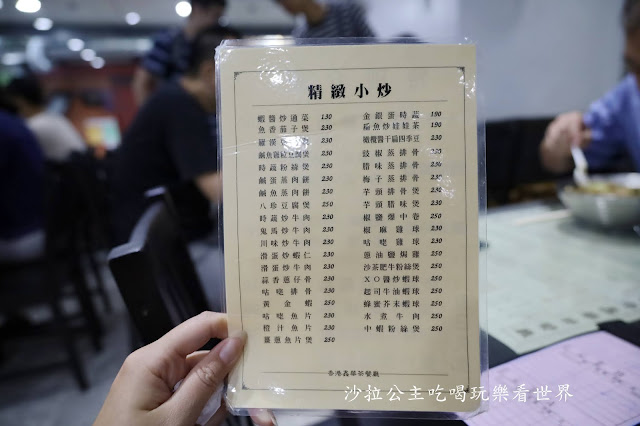 精緻小炒
蝦醬炒通菜 130
魚香茄子煲
羅漢
鹹魚雞粒豆腐煲
時蔬粉絲煲
鹹蛋蒸肉餅 230
鹹魚蒸肉餅 230
八珍豆腐煲 250
時蔬炒牛肉 250
鬼馬炒牛肉 250
川味炒牛肉 230
滑蛋炒蝦仁 230
滑蛋炒牛肉 230
蒜香蔥仔骨 230
咕咾排骨 230
黃金蝦 250
咕咾魚片 230
橙汁魚片 230
薑蔥魚片煲 250
金銀蛋時蔬 190
扁魚炒娃娃菜 190
橄欖醬干扁四季豆 230
豉椒蒸排骨 230
腊味蒸排骨 230
梅子蒸排骨 230
芋頭排骨煲 230
芋頭腊味煲 250
椒鹽爆中卷 250
椒麻雞球 230
咕咾雞球 230
蔥油鹽焗雞 230
沙茶肥牛粉絲煲 250
XO醬炒蝦球 250
起司牛油蝦球 250
蜂蜜芥末蝦球 250
水煮牛肉 250
中蝦粉絲煲 250
香港鑫華茶餐廳
沙拉公主吃喝玩樂看世界